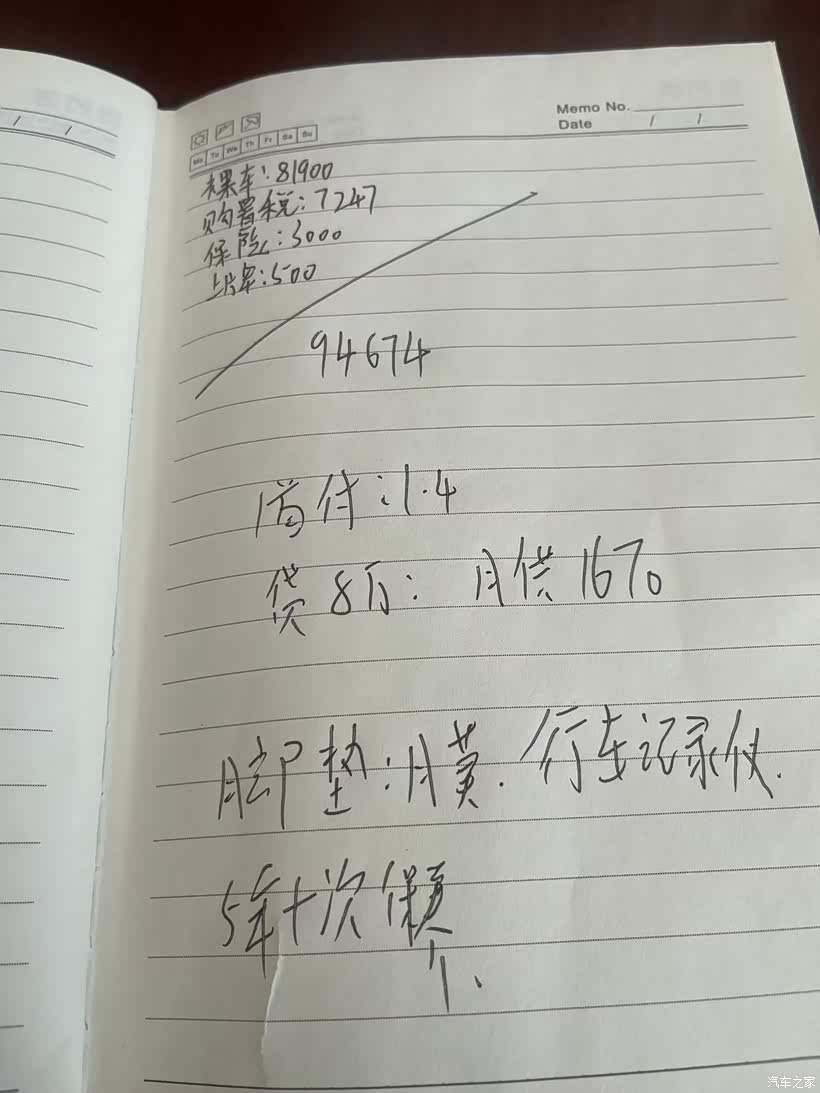 Memo No.
Date / /
Mo Tu We Th Fr Sa Su
裸车:81900
购置税:7247
保险:3000
上牌:500
94674
首付:1.4
贷8万: 月供1670
脚垫:月莫.行车记录仪.
5年十次保养、
汽车之家